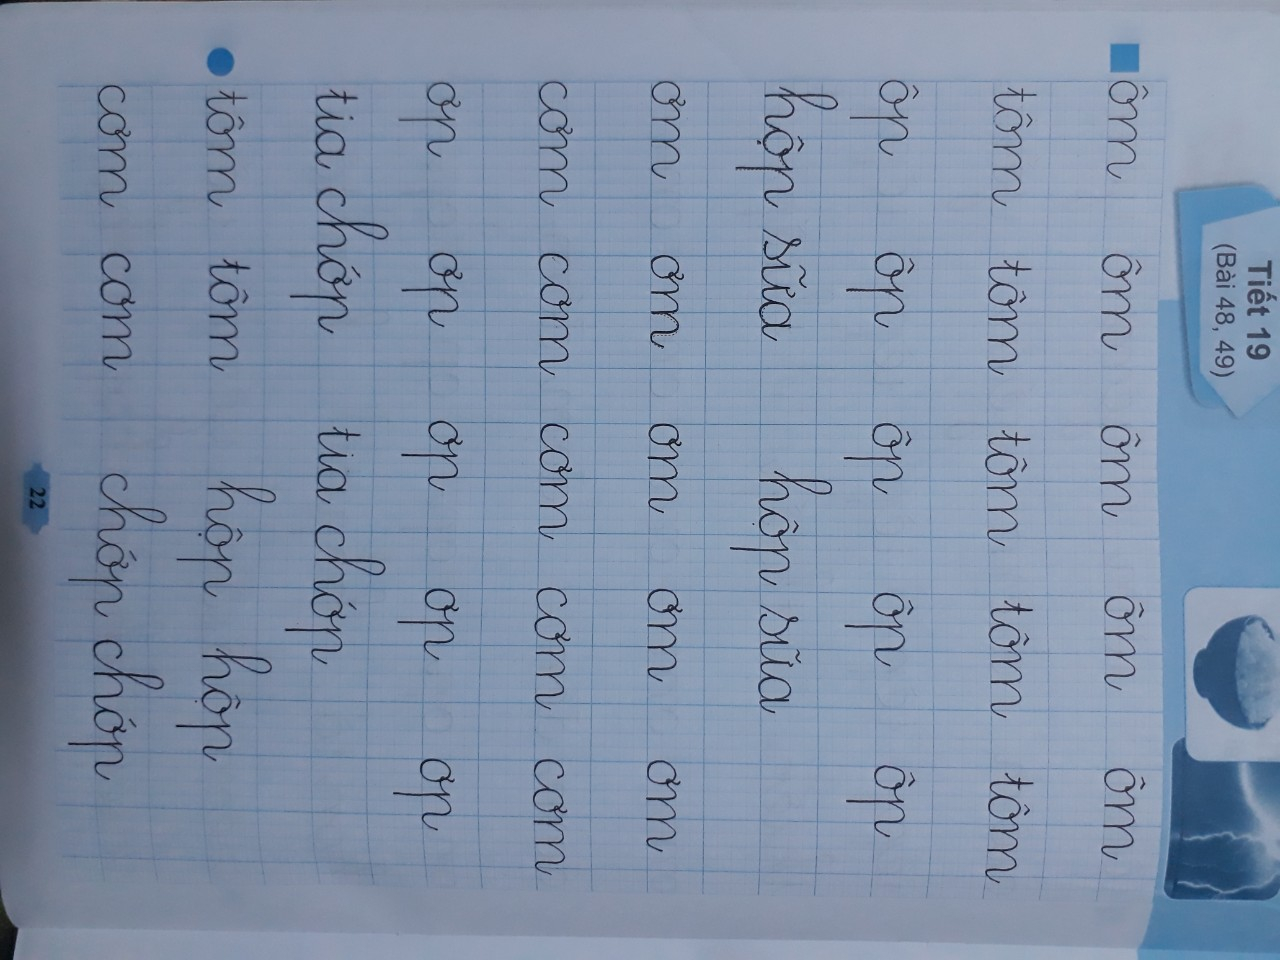 Tiết 19
(Bài 48, 49)
ôm ôm ôm ôm ôm
tôm tôm tôm tôm tôm
ôp ôp ôp ôp ôp
hộp sữa hộp sữa
ơm ơm ơm ơm ơm
cơm cơm cơm cơm cơm
ơp ơp ơp ơp ơp
tia chớp tia chớp
tôm tôm hộp hộp
cơm cơm chớp chớp
22